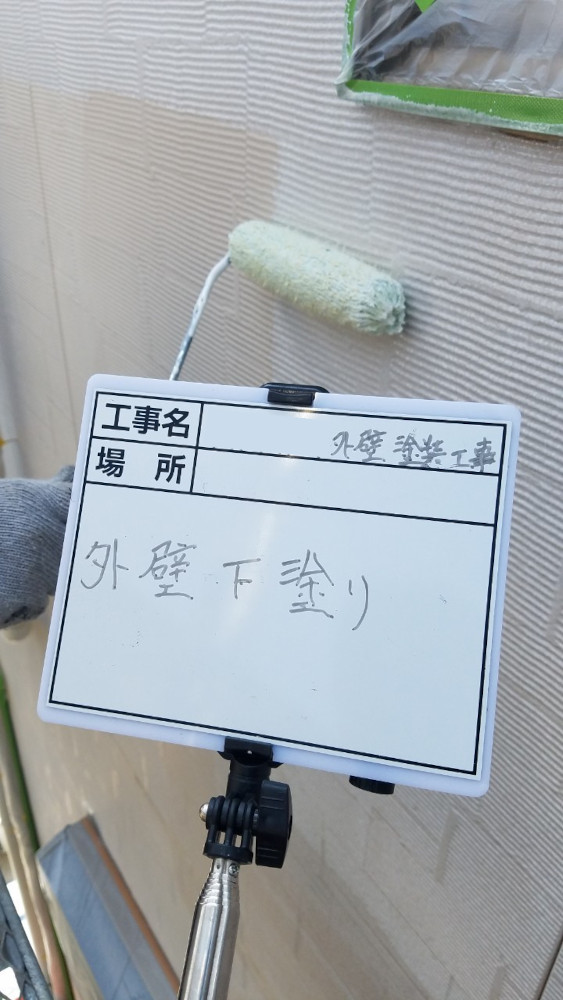 工事名 外壁塗装工事
場所
外壁下塗り